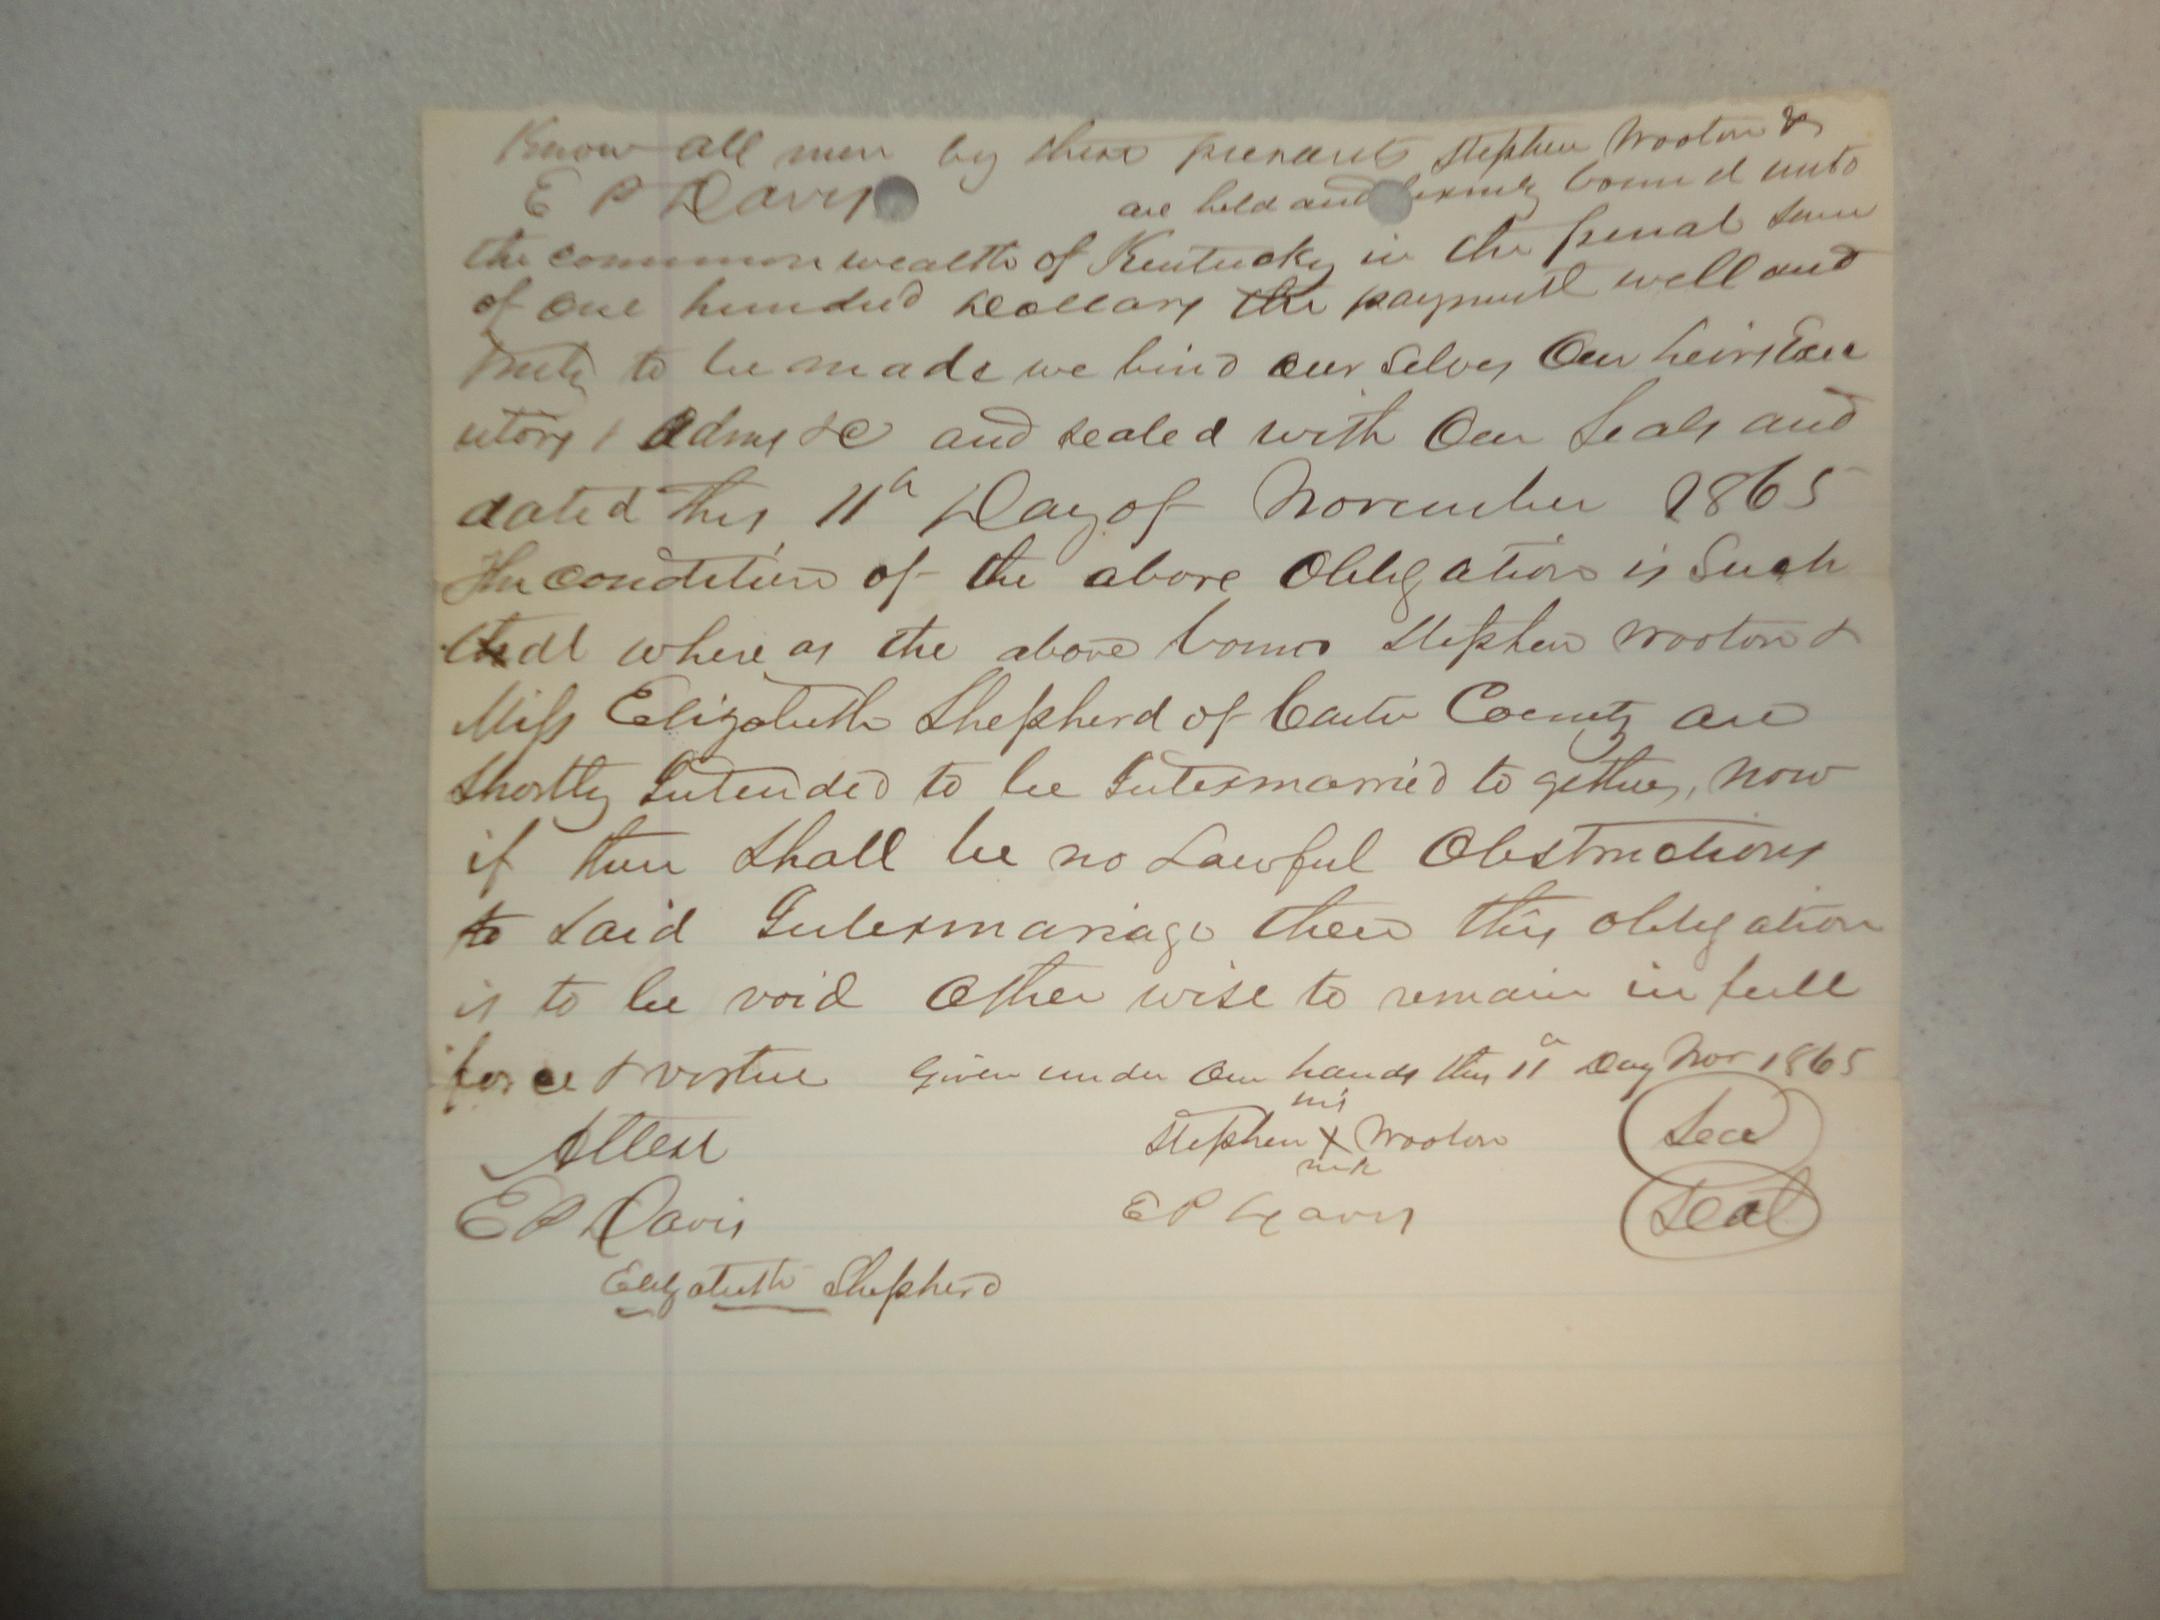 Know all men by these presents Stephen Wooton &
E P Davis are held and firmly bound unto
the common wealth of Kentucky in the penal sum
of one hundred Dollars the payment well and
truly to be made we bind our selves Our heirs Exec
utors & Adms &c and sealed with Our Seals and
dated this 11th Day of November 1865
The condition of the above Obligation is Such
that where as the above boun Stephen Wooton &
Miss Elizabeth Shepherd of Carter County are
shortly Intended to be Intermarried to gether, Now
if there shall be no Lawful Obstructions
to said Intermariage then this obligation
is to be void Other wise to remain in full
force & virtue Given under Our hands this 11th Day Nov 1865
his
Attest Stephen X Wooton Seal
mrk
E P Davis E P Davis Seal
Elizabeth Shepherd